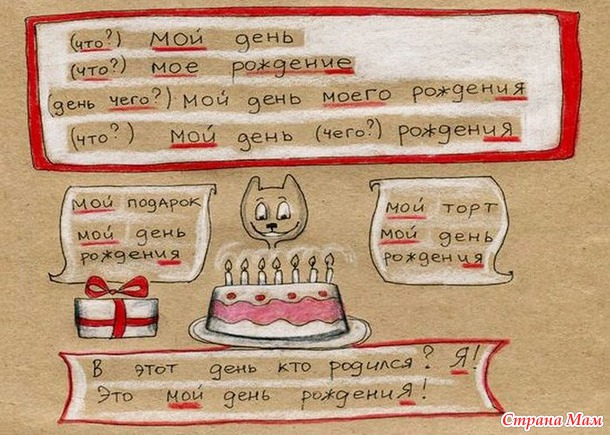 (что?) мой день
(что?) мое рождение
(день чего?) мой день моего рождения
(что?) мой день (чего?) рождения
мой подарок
мой день
рождения
мой торт
мой день
рождения
В этот день кто родился? Я!
Это мой день рожденИЯ!
Страна Мам